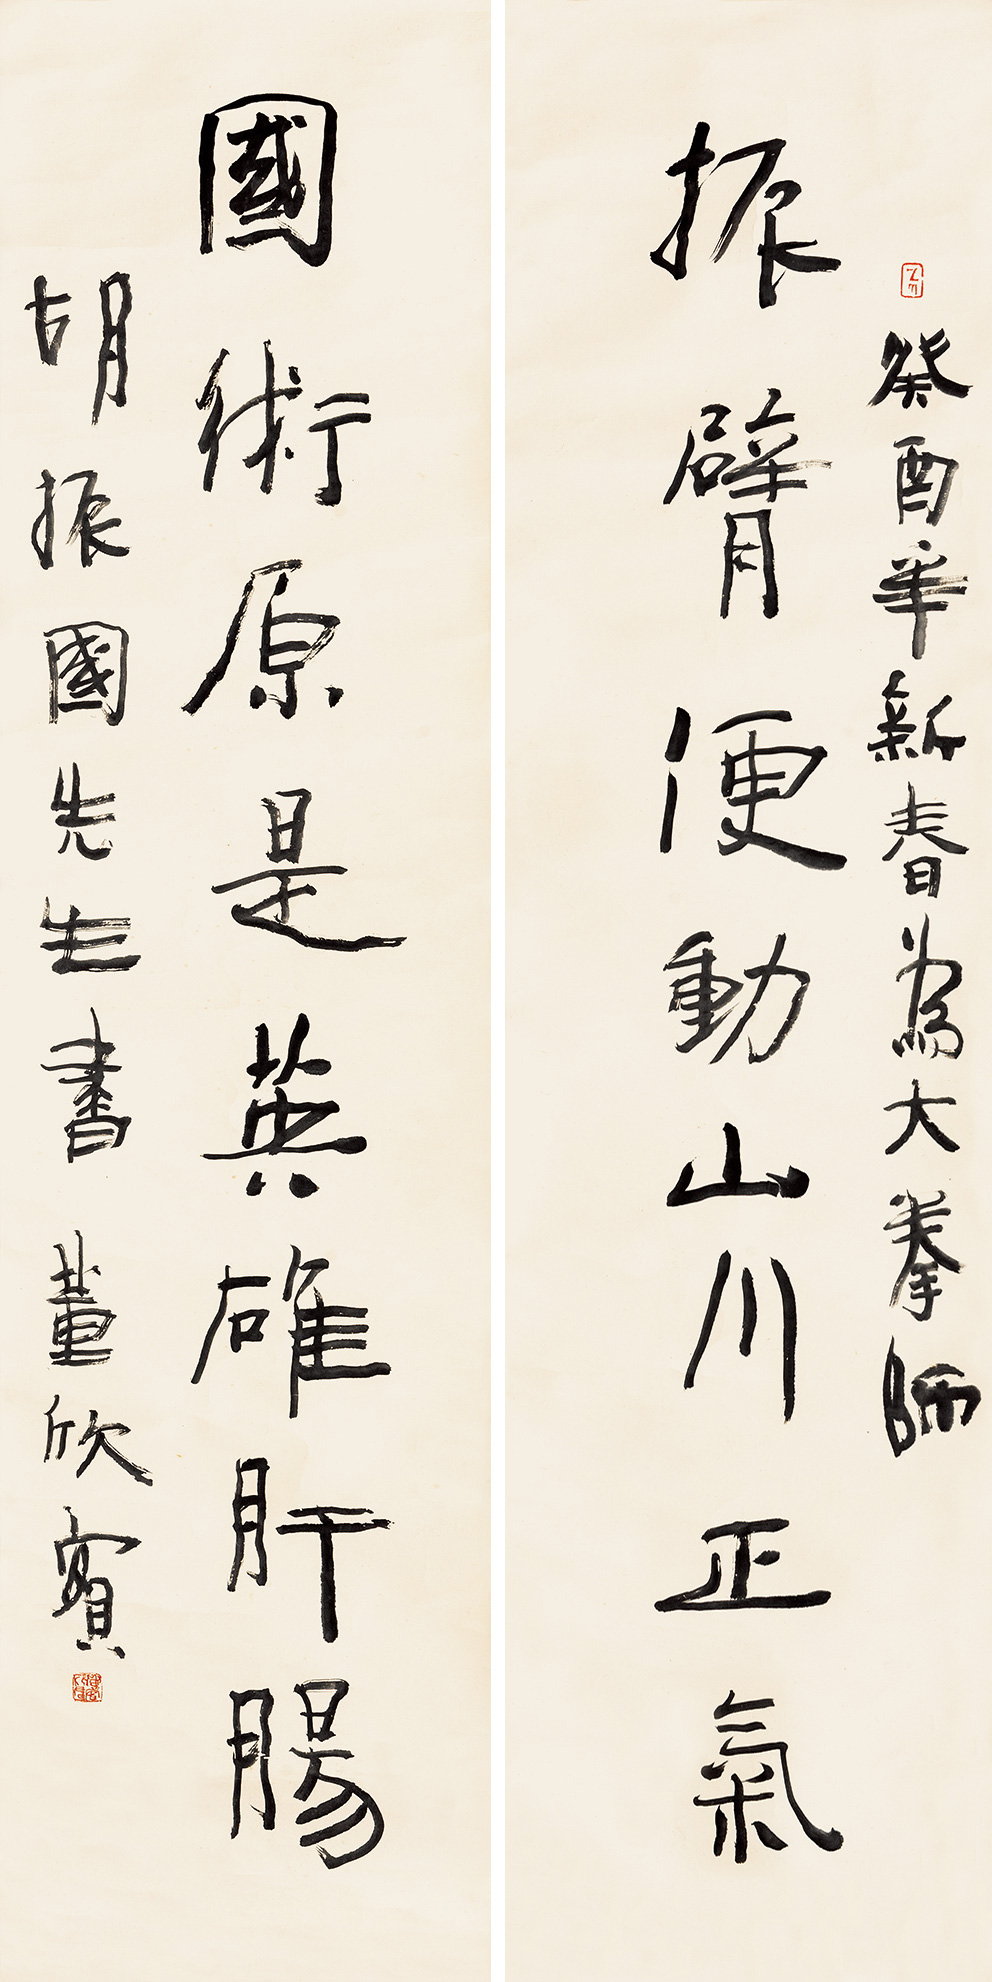 癸酉年新春為大拳師
振臂便動山川正氣
國術原是英雄肝腸
胡振國先生書董欣賓